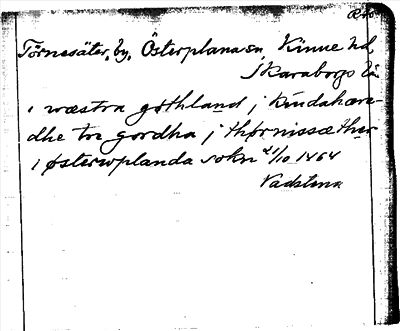 RAO
Törnesäter, by, Österplana sn Kinne hd,
Skaraborgs län
i wæstra gøthland j kindahære-
dhe tre gordha j thørnissæther
i østerwplanda sokn 21/10 1464
Vadstena